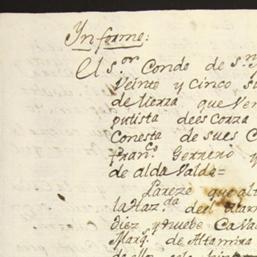 Ynforme:
El S.or Conde de S.n
Veinte y Cinco
de tierra que Ven
putista de es Corza
Conesta de sues C
Fran.co Gerrero y
de alda Valde=
Pareze que alt
la Haz.da del Mar
diez y nuebe Cava
Marq. de Altamira